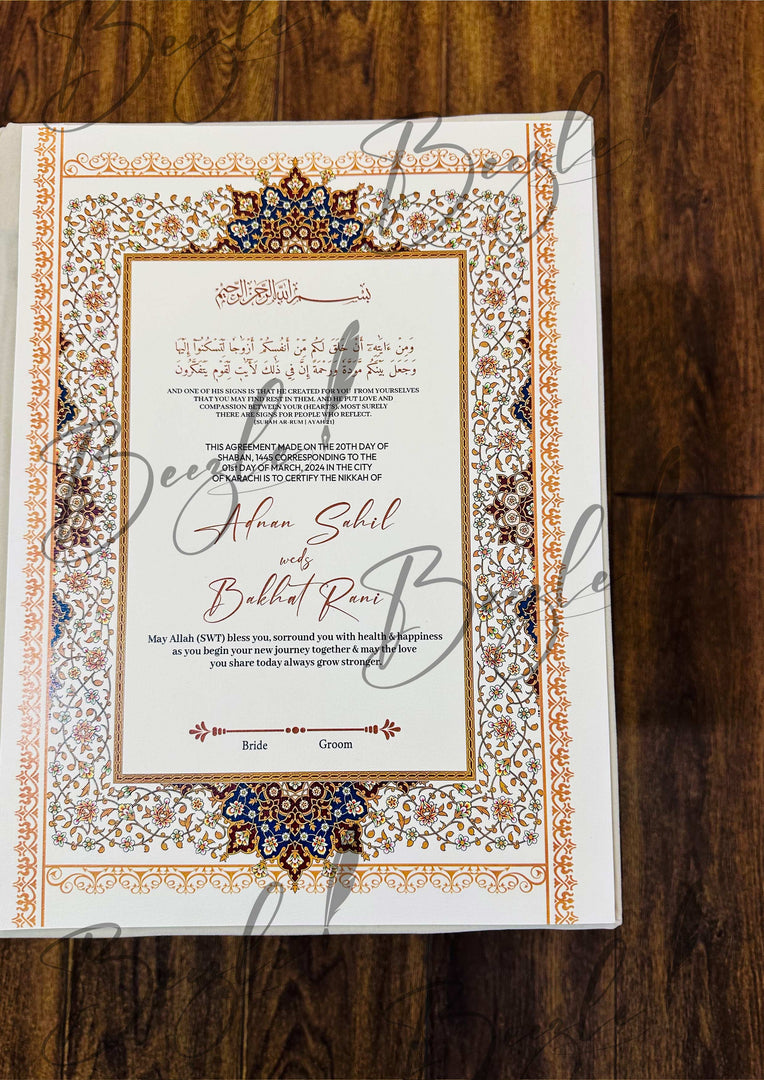 بسم الله الرحمن الرحيم
وَمِنْ ءَايَٰتِهِۦٓ أَنْ خَلَقَ لَكُم مِّنْ أَنفُسِكُمْ أَزْوَٰجًا لِّتَسْكُنُوٓا۟ إِلَيْهَا
وَجَعَلَ بَيْنَكُم مَّوَدَّةً وَرَحْمَةً إِنَّ فِى ذَٰلِكَ لَءَايَٰتٍ لِّقَوْمٍ يَتَفَكَّرُونَ
AND ONE OF HIS SIGNS IS THAT HE CREATED FOR YOU FROM YOURSELVES
THAT YOU MAY FIND REST IN THEM, AND HE PUT LOVE AND
COMPASSION BETWEEN YOUR (HEARTS); MOST SURELY
THERE ARE SIGNS FOR PEOPLE WHO REFLECT.
(SURAH AR-RUM | AYAH 21)
THIS AGREEMENT MADE ON THE 20TH DAY OF
SHABAN, 1445 CORRESPONDING TO THE
01st DAY OF MARCH, 2024 IN THE CITY
OF KARACHI IS TO CERTIFY THE NIKKAH OF
Adnan Sahil
weds
Bakhat Rani
May Allah (SWT) bless you, sorround you with health & happiness
as you begin your new journey together & may the love
you share today always grow stronger.
Bride Groom
Beezle
Beezle
Beezle
Beezle
Beezle
Beezle